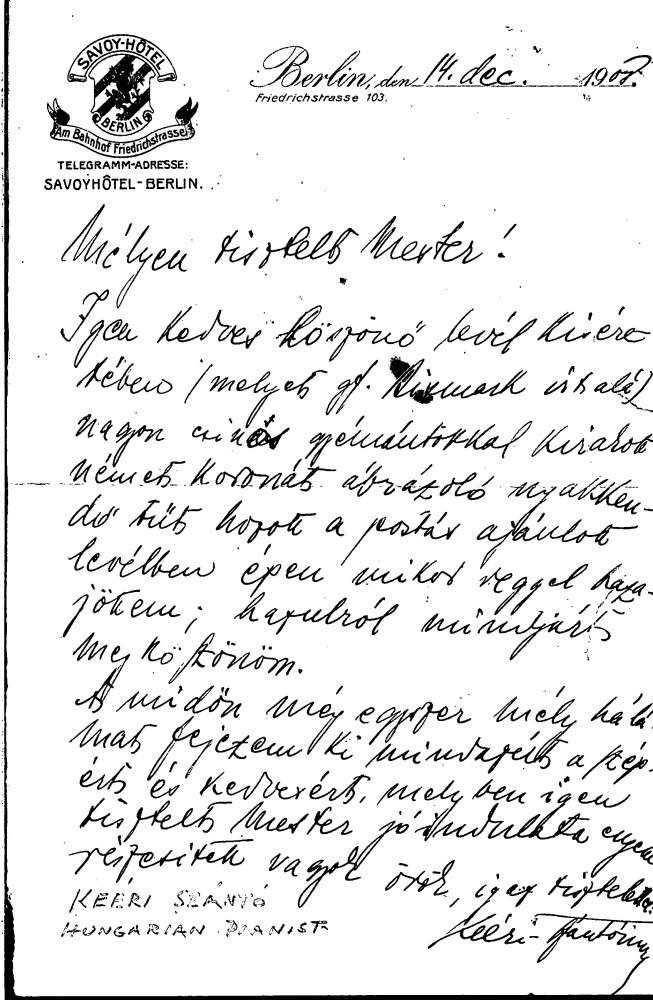 SAVOY-HÔTEL
BERLIN
Am Bahnhof Friedrichstrasse
TELEGRAMM-ADRESSE:
SAVOYHÔTEL-BERLIN.
Berlin, den 14. dec. 1907.
Friedrichstrasse 103.
14
Mélyen tisztelt Mester!
Igen kedves köszönő levél kisére-
tében (melyet gf. Bismark
nagon csinos gyémántokkal kirakott
német koronát ábrázoló nyakken-
dő tűt hozott a postás ajánlott
levélben épen mikor reggel haza-
jöttem;
mindjárt
megköszönöm.
A midőn még egyszer mély hálá-
mat fejezem ki mindazért a szép-
ért és kedvesért, melyben igen
tisztelt Mester jóindulata engem
részesitett vagyok örök, igaz tisztelettel
Kééri-Szántó
KEÉRI SZÁNTÓ
HUNGARIAN PIANIST